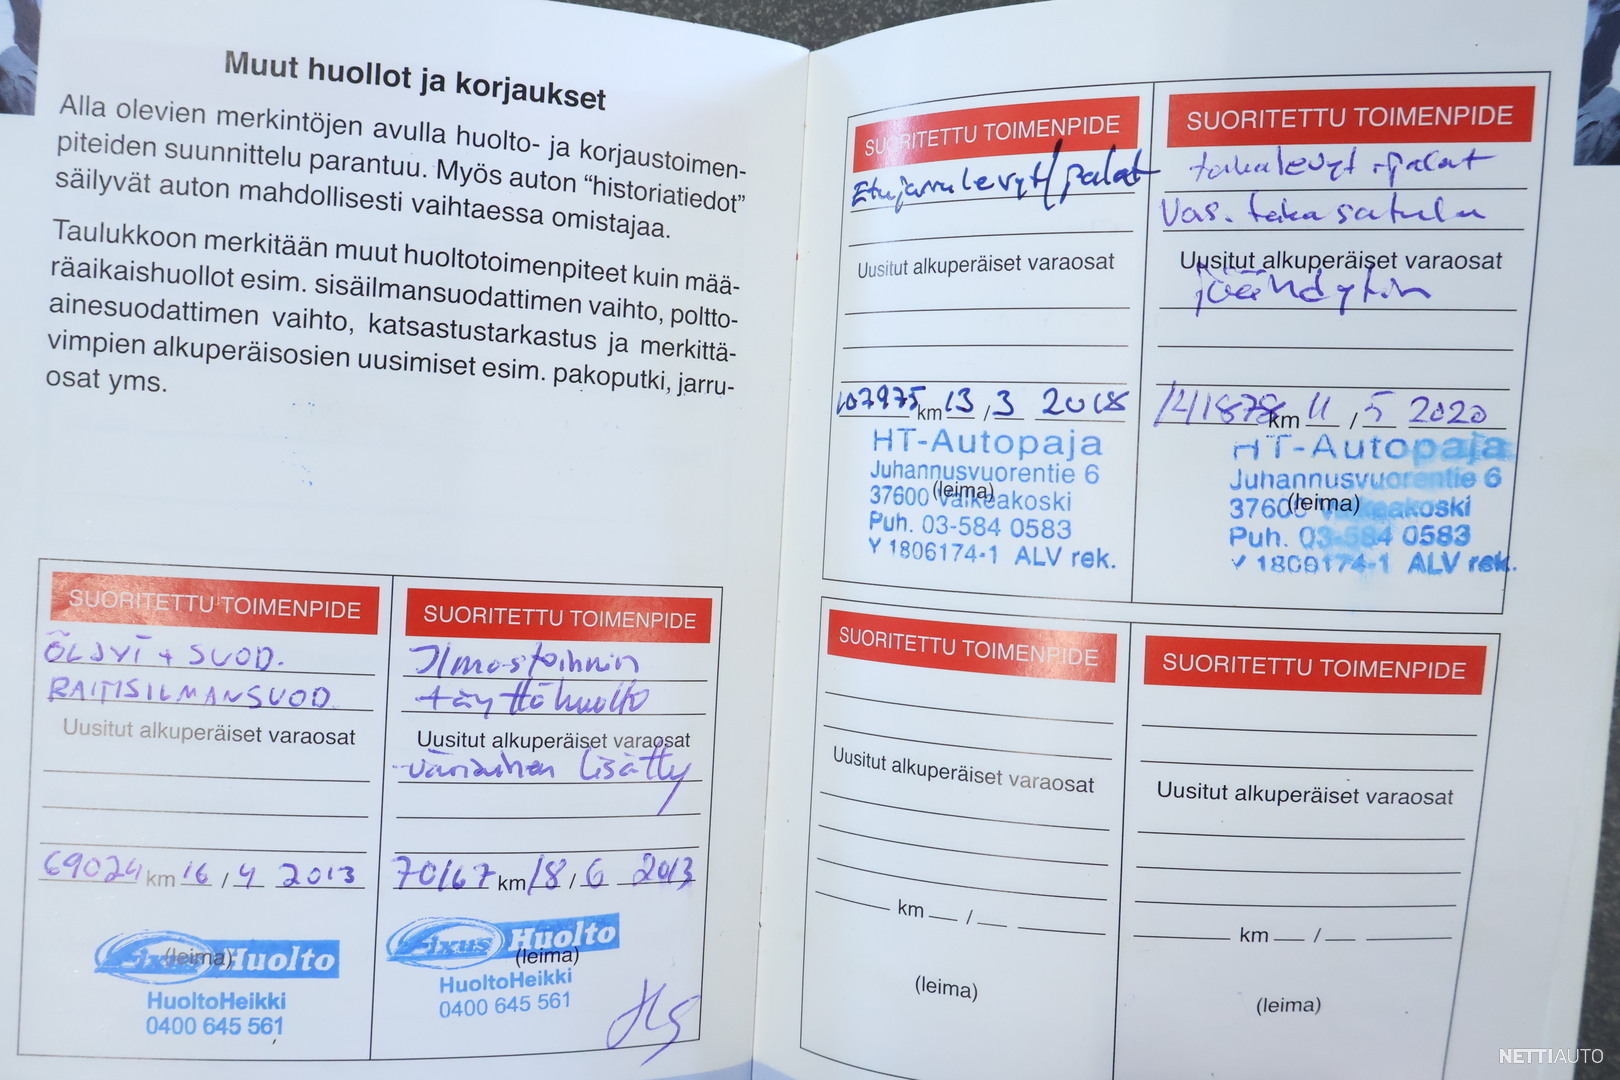 Muut huollot ja korjaukset
Alla olevien merkintöjen avulla huolto- ja korjaustoimen-
piteiden suunnittelu parantuu. Myös auton “historiatiedot”
säilyvät auton mahdollisesti vaihtaessa omistajaa.
Taulukkoon merkitään muut huoltotoimenpiteet kuin mää-
räaikaishuollot esim. sisäilmansuodattimen vaihto, poltto-
ainesuodattimen vaihto, katsastustarkastus ja merkittä-
vimpien alkuperäisosien uusimiset esim. pakoputki, jarru-
osat yms.
SUORITETTU TOIMENPIDE
ÖLJYT + SUOD.
RAITISILMANSUOD.
Uusitut alkuperäiset varaosat
69024 km 16 / 4 2013
(leima)
Fixus Huolto
HuoltoHeikki
0400 645 561
SUORITETTU TOIMENPIDE
Ilmastoinnin
täyttöhuolto
Uusitut alkuperäiset varaosat
- väriaine lisätty
70167 km 18 / 6 2013
Fixus Huolto
(leima)
HuoltoHeikki
0400 645 561
SUORITETTU TOIMENPIDE
Etujarrulevyt/palat
Uusitut alkuperäiset varaosat
107975 km 13 / 3 2018
HT-Autopaja
Juhannusvuorentie 6
(leima)
37600 Valkeakoski
Puh. 03-584 0583
Y 1806174-1 ALV rek.
SUORITETTU TOIMENPIDE
takalevyt + palat
Vas. taka satula
Uusitut alkuperäiset varaosat
jäähdytin
141878 km 11 / 5 2020
HT-Autopaja
Juhannusvuorentie 6
(leima)
37600 Valkeakoski
Puh. 03-584 0583
Y 1806174-1 ALV rek.
SUORITETTU TOIMENPIDE
Uusitut alkuperäiset varaosat
km / 
(leima)
SUORITETTU TOIMENPIDE
Uusitut alkuperäiset varaosat
km /
(leima)
NETTIAUTO